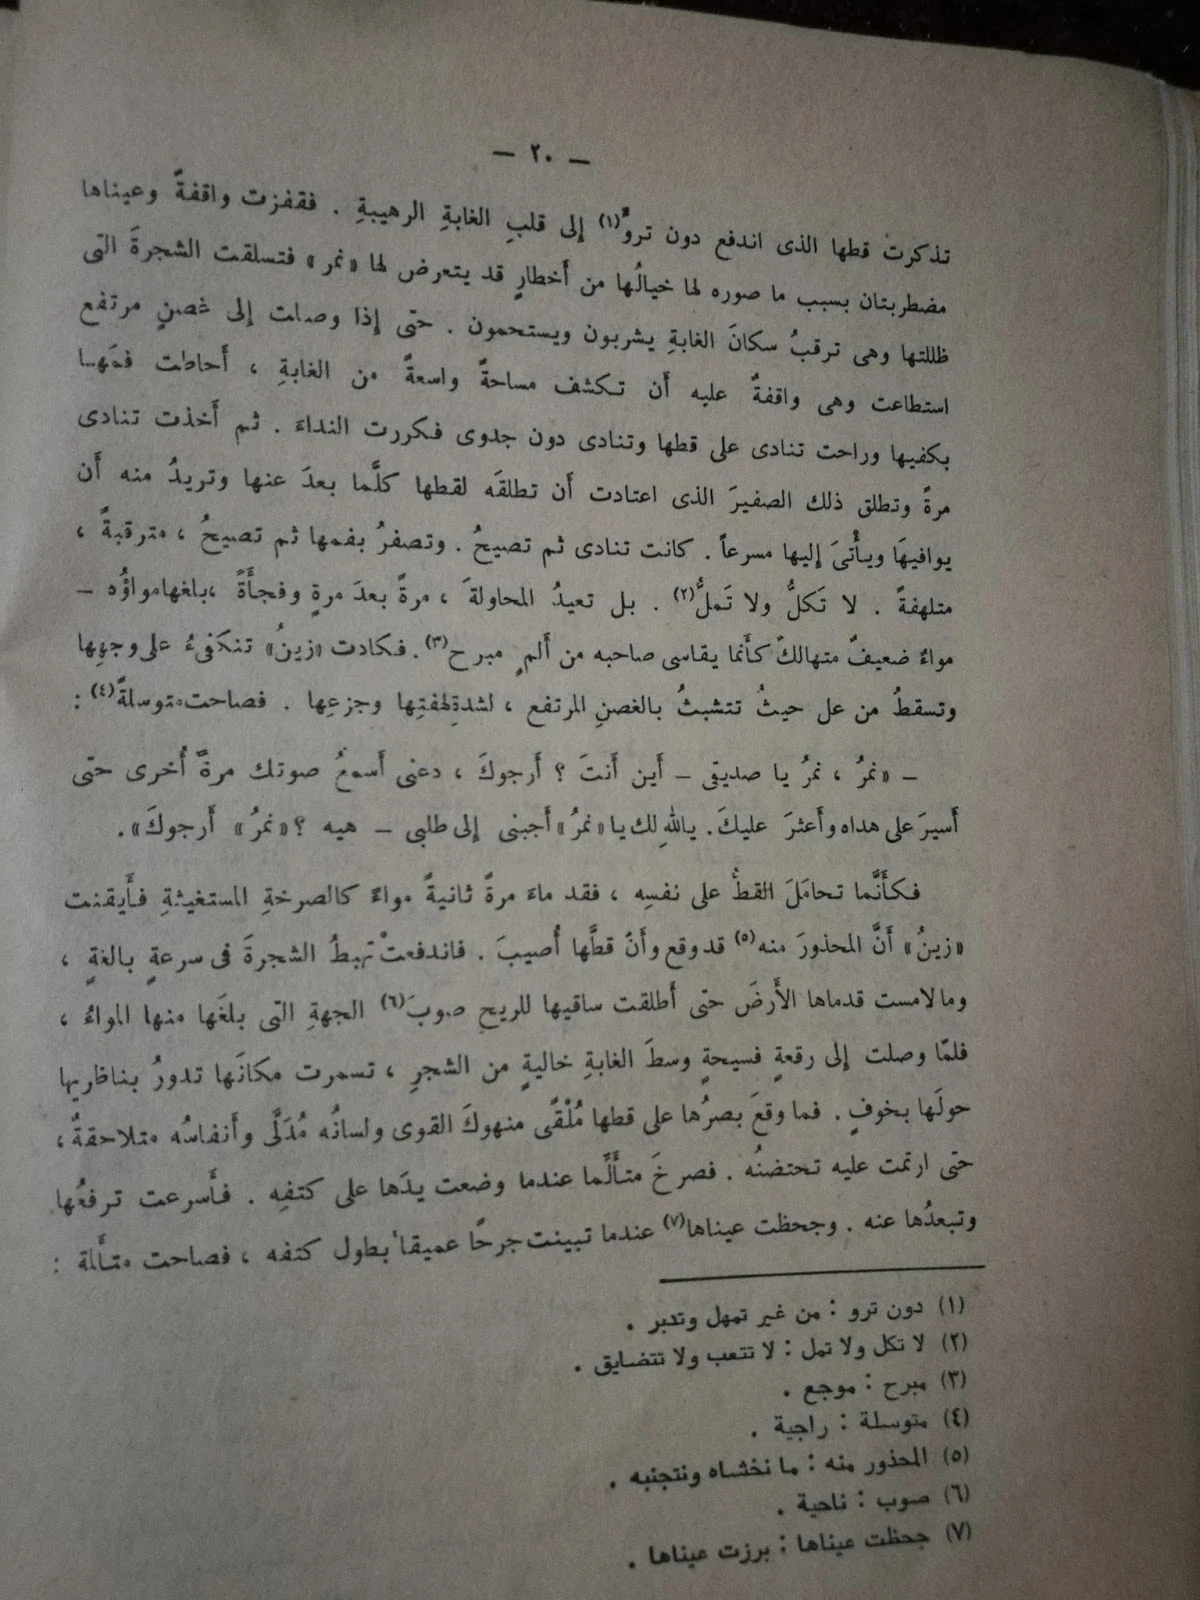 — ٢٠ —
تذكرت قطها الذى اندفع دون تروٍّ(١) إلى قلبِ الغابةِ الرهيبةِ . فقفزت واقفةً وعيناها
مضطربتان بسبب ما صوره لها خيالُها من أَخطارٍ قد يتعرض لها «نمر» فتسلقت الشجرةَ التى
ظللتها وهى ترقبُ سكانَ الغابةِ يشربون ويستحمون . حتى إذا وصلت إلى غصنٍ مرتفع
استطاعت وهى واقفةٌ عليه أَن تكشف مساحةً واسعةً من الغابةِ ، أَحاطت فمَها
بكفيها وراحت تنادى على قطها وتنادى دون جدوى فكررت النداءَ . ثم أَخذت تنادى
مرةً وتطلق ذلك الصفيرَ الذى اعتادت أَن تطلقَه لقطها كلَّما بعدَ عنها وتريدُ منه أَن
يوافيهَا ويأْتىَ إليها مسرعاً . كانت تنادى ثم تصيحُ . وتصفرُ بفمها ثم تصيحُ ، مترقبةً ،
متلهفةً . لا تَكلُّ ولا تَملُّ(٢) . بل تعيدُ المحاولةَ ، مرةً بعدَ مرةٍ وفجأَةً ،بلغهامواؤُه –
مواءٌ ضعيفٌ متهالكٌ كأَنما يقاسى صاحبه من أَلمٍ مبرح(٣). فكادت «زينُ» تنكفىءُ على وجهِها
وتسقطُ من عل حيثُ تتشبثُ بالغصنِ المرتفع ، لشدةِلهفتِها وجزعِها . فصاحت متوسلةً(٤) :
– «نمرُ ، نمرُ يا صديقى – أَين أَنتَ ؟ أَرجوكَ ، دعنى أَسمعُ صوتك مرةً أُخرى حتى
أَسيرَ على هداه وأَعثرَ عليكَ. ياللهِ لك يا «نمرُ» أَجبنى إلى طلبى – هيه ؟ «نمرُ» أَرجوكَ».
فكأَنَّما تحامَلَ القطُ على نفسِه ، فقد ماءَ مرةً ثانيةً مواءً كالصرخةِ المستغيثةِ فأَيقنت
«زينُ» أَنَّ المحذورَ منه(٥) قد وقع وأَنَّ قطَّها أُصيبَ . فاندفعتْ تهبطُ الشجرةَ فى سرعةٍ بالغةٍ ،
وما لامست قدماها الأَرضَ حتى أَطلقت ساقيها للريح صوبَ(٦) الجهةِ التى بلغَها منها المواءُ ،
فلمّا وصلت إلى رقعةٍ فسيحةٍ وسطَ الغابةِ خاليةٍ من الشجرِ ، تسمرت مكانَها تدورُ بناظريها
حولَها بخوفٍ . فما وقعَ بصرُها على قطها مُلْقًى منهوكَ القوى ولسانُه مُدَلَّى وأَنفاسُه متلاحقةٌ ،
حتى ارتمت عليه تحتضنُه . فصرخَ متأَلِّما عندما وضعت يدَها على كتفِه . فأَسرعت ترفعُها
وتبعدُها عنه . وجحظت عيناها(٧) عندما تبينت جرحًا عميقا بطول كتفه ، فصاحت متأَلمة :
(١) دون ترو : من غير تمهل وتدبر .
(٢) لا تكل ولا تمل : لا تتعب ولا تتضايق .
(٣) مبرح : موجع .
(٤) متوسلة : راجية .
(٥) المحذور منه : ما نخشاه ونتجنبه .
(٦) صوب : ناحية .
(٧) جحظت عيناها : برزت عيناها .